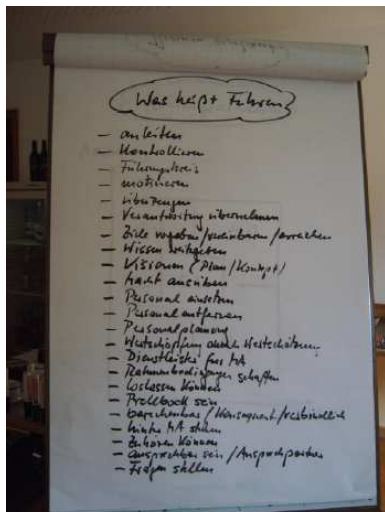 Was heißt Führen
- anleiten
- Kontrollieren
- Führungskreis
- motivieren
- überzeugen
- Verantwortung übernehmen
- Ziele vorgeben/vereinbaren/erreichen
- Wissen weitergeben
- Visionen (Plan/Konzept)
- Macht ausüben
- Personal einsetzen
- Personal entfernen
- Personalplanung
- Wertschöpfung durch Wertschätzung
- Dienstleister für MA
- Rahmenbedingungen schaffen
- loslassen können
- Prellbock sein
- berechenbar/Konsequent/verbindlich
- hinter MA stehen
- Zuhören können
- ansprechbar sein/Ansprechpartner
- Fragen stellen